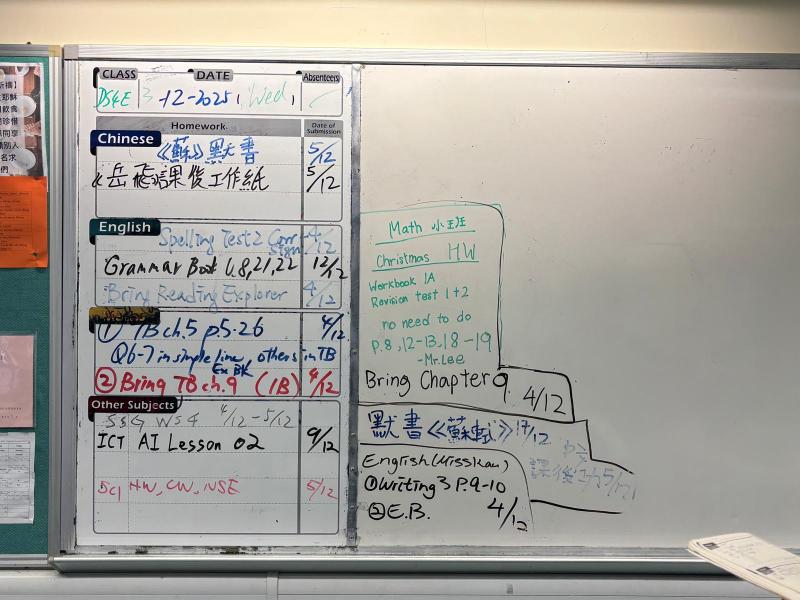 CLASS DATE Absenteers
DS4E 3-12-2025, Wed,
Homework Date of Submission
Chinese
《蘇》默書 5/12
岳飛課後工作紙 5/12
English
Spelling Test 2 Corr 4/12
Sign
Grammar Book U.8,21,22 12/12
Bring Reading Explorer 4/12
① TB ch.5 p.5-26 4/12
Q6-7 in simple line, others in TB
Ex BK
② Bring TB ch.9 (1B) 4/12
Other Subjects
SSG WS4 4/12-5/12
ICT AI Lesson 02 9/12
Sci HW, CW, NSE 5/12
Math 小班
Christmas HW
Workbook 1A
Revision test 1+2
no need to do
p.8,12-13,18-19
-Mr.Lee
Bring Chapter 9 4/12
默書《蘇軾》17/12
課後
English (Miss Kan)
① Writing 3 P.9-10
② E.B. 4/12